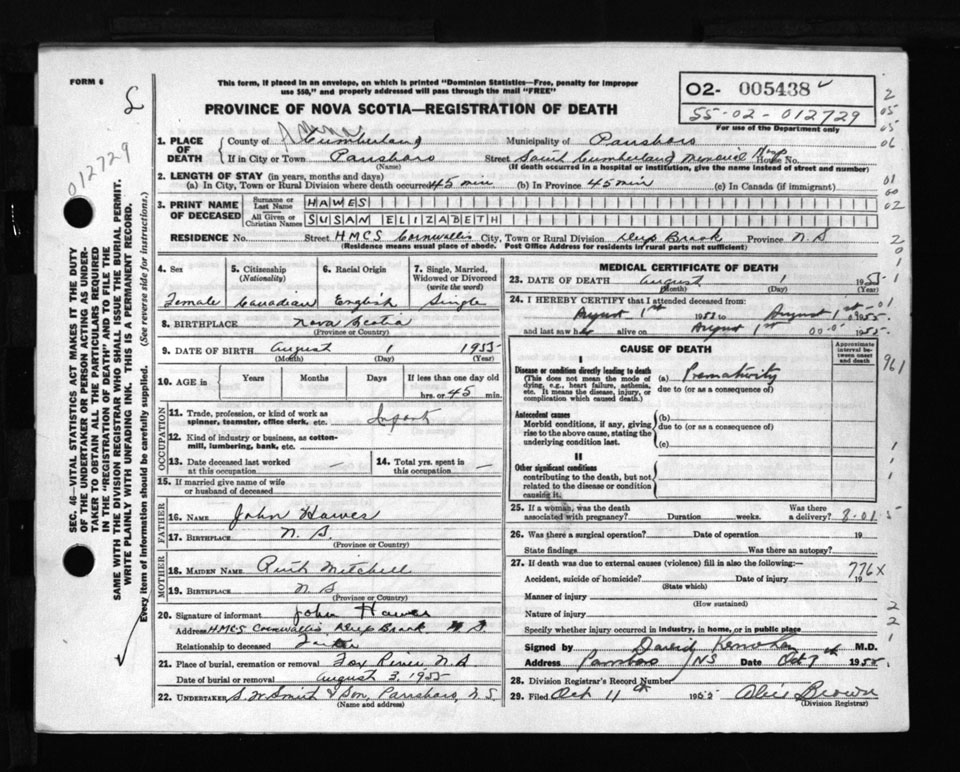 FORM 6
This form, if placed in an envelope, on which is printed "Dominion Statistics—Free, penalty for improper
use $50," and properly addressed will pass through the mail "FREE"
PROVINCE OF NOVA SCOTIA—REGISTRATION OF DEATH
O2- 005438
55-02-012729
For use of the Department only
012729
SEC. 46—VITAL STATISTICS ACT MAKES IT THE DUTY
OF THE UNDERTAKER OR PERSON ACTING AS UNDER-
TAKER TO OBTAIN ALL THE PARTICULARS REQUIRED
IN THE "REGISTRATION OF DEATH" AND TO FILE THE
SAME WITH THE DIVISION REGISTRAR WHO SHALL ISSUE THE BURIAL PERMIT.
WRITE PLAINLY WITH UNFADING INK. THIS IS A PERMANENT RECORD.
Every item of information should be carefully supplied. (See reverse side for instructions.)
1. PLACE OF DEATH
County of Cumberland Municipality of Parrsboro
If in City or Town Parrsboro Street South Cumberland Memorial Hosp House No.
(Name) (If death occurred in a hospital or institution, give the name instead of street and number)
2. LENGTH OF STAY (in years, months and days)
(a) In City, Town or Rural Division where death occurred 45 min (b) In Province 45 min (c) In Canada (if immigrant)
3. PRINT NAME OF DECEASED
Surname or Last Name HAWES
All Given or Christian Names SUSAN ELIZABETH
RESIDENCE No. Street HMCS Cornwallis City, Town or Rural Division Deep Brook Province N.S
(Residence means usual place of abode. Post Office Address for residents in rural parts not sufficient)
4. Sex
Female
5. Citizenship (Nationality)
Canadian
6. Racial Origin
English
7. Single, Married, Widowed or Divorced (write the word)
Single
8. BIRTHPLACE Nova Scotia
(Province or Country)
9. DATE OF BIRTH August 1 1955
(Month) (Day) (Year)
10. AGE in Years Months Days If less than one day old
hrs. or 45 min.
OCCUPATION
11. Trade, profession, or kind of work as spinner, teamster, office clerk, etc. Infant
12. Kind of industry or business, as cotton-mill, lumbering, bank, etc.
13. Date deceased last worked at this occupation —
14. Total yrs. spent in this occupation —
15. If married give name of wife or husband of deceased
FATHER
16. NAME John Hawes
17. BIRTHPLACE N. S.
(Province or Country)
MOTHER
18. MAIDEN NAME Ruth Mitchell
19. BIRTHPLACE N S
(Province or Country)
20. Signature of informant John Hawes
Address HMCS Cornwallis, Deep Brook N S.
Relationship to deceased Father
21. Place of burial, cremation or removal Fox River, N.S
Date of burial or removal August 3, 1955
22. UNDERTAKER S.W. Smith & Son, Parrsboro, N.S.
(Name and address)
MEDICAL CERTIFICATE OF DEATH
23. DATE OF DEATH August 1 1955
(Month) (Day)
24. I HEREBY CERTIFY that I attended deceased from:
August 1st 1955 to August 1st 1955
and last saw her alive on August 1st 1955
CAUSE OF DEATH
Approximate interval between onset and death
I
Disease or condition directly leading to death
(This does not mean the mode of dying, e.g., heart failure, asthenia, etc. It means the disease, injury, or complication which caused death.)
(a) Prematurity
due to (or as a consequence of)
Antecedent causes
Morbid conditions, if any, giving rise to the above cause, stating the underlying condition last.
(b)
due to (or as a consequence of)
(c)
II
Other significant conditions
contributing to the death, but not related to the disease or condition causing it.
25. If a woman, was the death associated with pregnancy? Duration weeks. Was there a delivery? 8-01
26. Was there a surgical operation? Date of operation 19
State findings Was there an autopsy?
27. If death was due to external causes (violence) fill in also the following:—
776X
Accident, suicide of homicide? Date of injury 19
(State which)
Manner of injury
(How sustained)
Nature of injury
Specify whether injury occurred in industry, in home, or in public place
Signed by David M.D.
Address Parrsboro NS Date Oct 7th 1955.
28. Division Registrar's Record Number
29. Filed Oct 11th 1955 Brown
(Division Registrar)
2
05
05
06
01
00
02
961